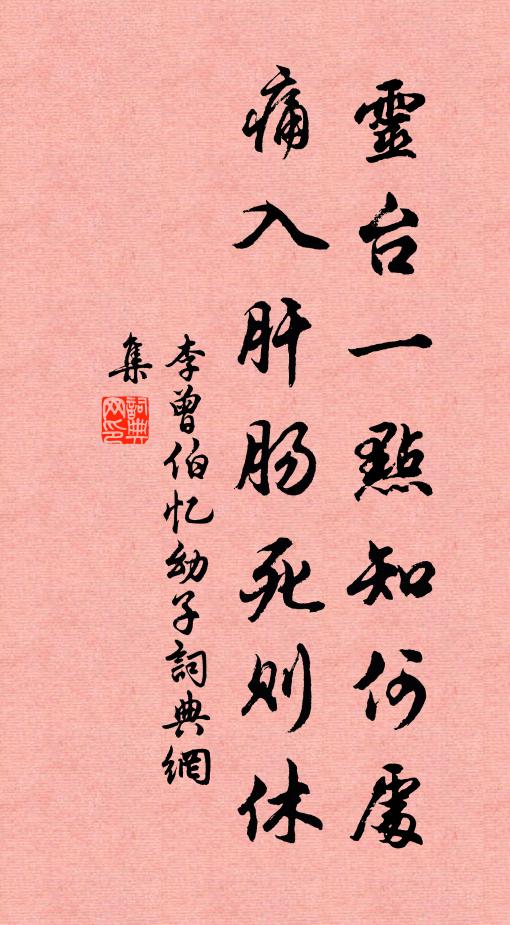 靈台一點知何處
痛入肝肠死则休
李曾伯忆幼子詞典網
集
詞典网印